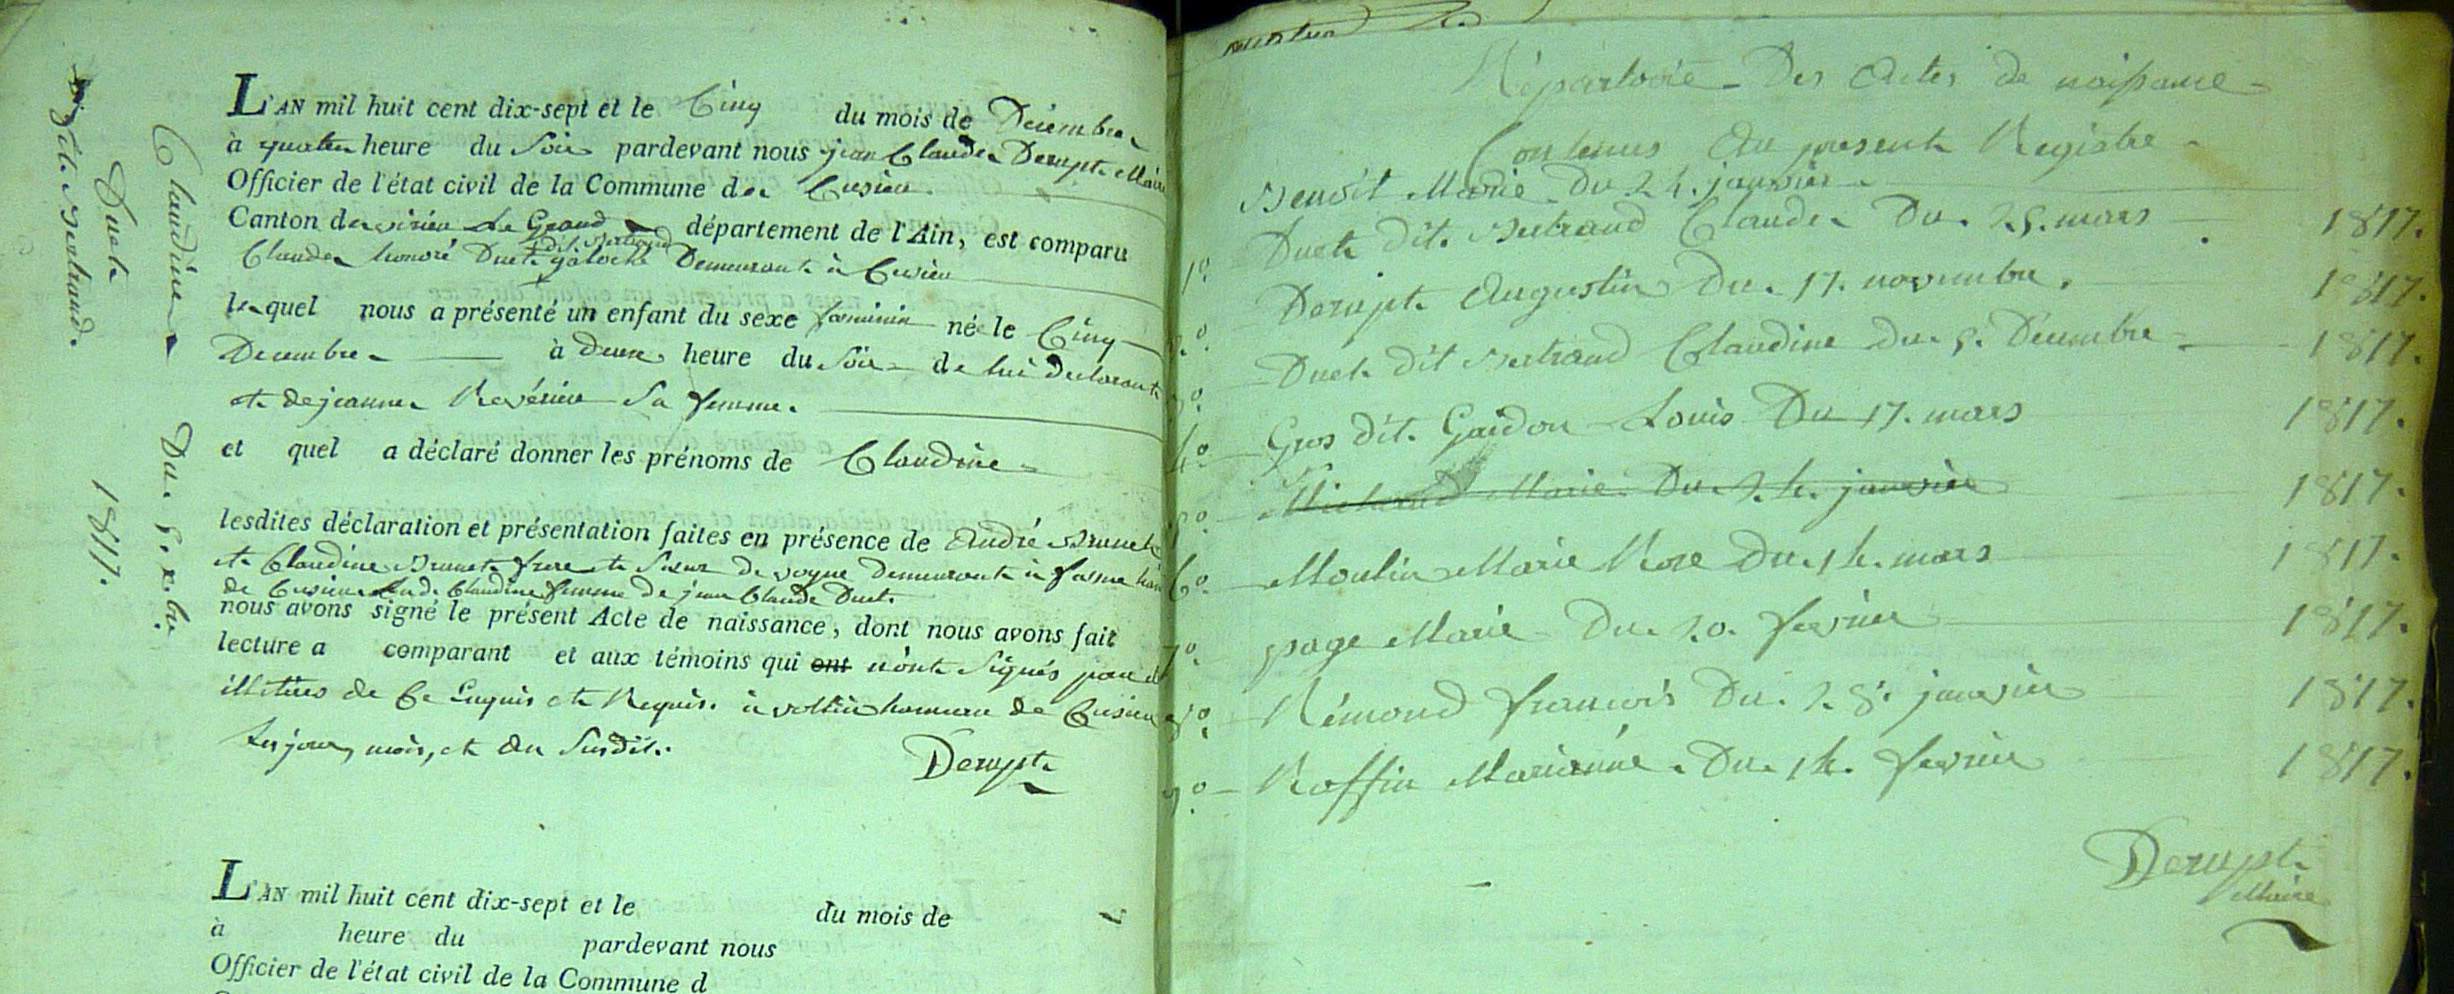 Claudine Du. 5. xbre
Duet 1817.
dit Bertrand.
L'AN mil huit cent dix-sept et le Cinq du mois de Décembre
à quatre heure du Soir pardevant nous jean Claude Derupt Maire
Officier de l'état civil de la Commune de Cusieu
Canton de virieu Le Grand département de l'Ain, est comparu
dit Bertrand
Claude honoré Duet galoche Demeurant à Cusieu
lequel nous a présenté un enfant du sexe feminin née le Cinq
Decembre à deux heure du Soir de lui declarant
et de jeanne Sa femme.
et quel a déclaré donner les prénoms de Claudine
lesdites déclaration et présentation faites en présence de André Brunet
et Claudine Brunet frere et Sœur de demeurant à
de Cusieu Lad. Claudine femme de jean Claude Duet
nous avons signé le présent Acte de naissance, dont nous avons fait
lecture a comparant et aux témoins qui ont n'ont Signés pour être
illitérés de Ce Enquis et Requis. à hameau de Cusieu
Les jour, mois, et an Susdit.
Derupt
L'AN mil huit cent dix-sept et le du mois de
à heure du pardevant nous
Officier de l'état civil de la Commune d
Répertoire Des Actes de naissance
Contenus Au present Registre
Benoit Marie Du 24. janvier 1817.
1° Duet dit Bertrand Claude Du. 25. mars 1817.
2° Derupt Augustin Du. 17. novembre. 1817.
3° Duet dit Bertrand Claudine du. 5. Décembre 1817.
4° Gros dit. Gaidon Louis Du 17. mars 1817.
5° Michaud Marie Du. 24. janvier 1817.
6° Moulin Marie Rose Du. 14. mars 1817.
7° page Marie Du. 20. fevrier 1817.
8° Rémond francois Du. 28. janvier 1817.
9° Roffin Marianne. Du. 14. fevrier
Derupt
Maire